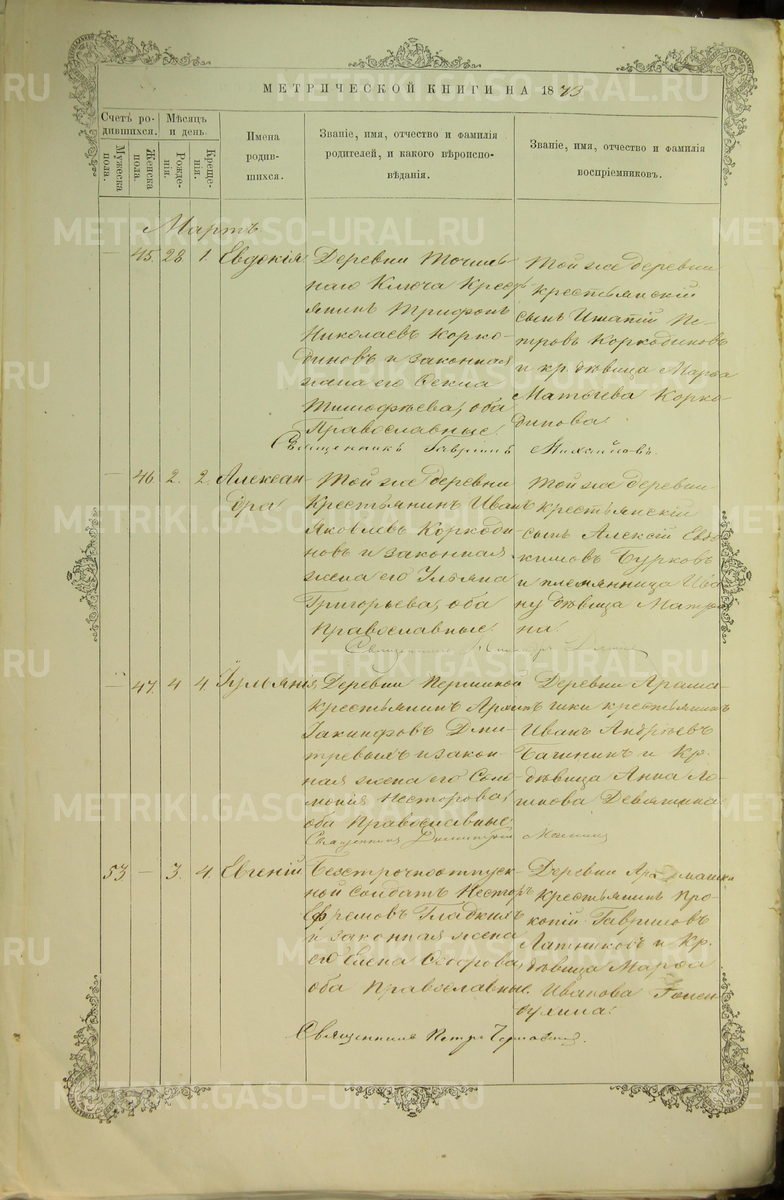 МЕТРИЧЕСКОЙ КНИГИ НА 1873
Счетъ ро-
дившихся.
Мужеска
пола.
Женска
пола.
Мѣсяцъ
и день.
Рожде-
нія.
Креще-
нія.
Имена
родив-
шихся.
Званіе, имя, отчество и фамилія
родителей, и какого вѣроиспо-
вѣданія.
Званіе, имя, отчество и фамилія
воспріемниковъ.
Мартъ
— 45 28 1 Евдокія
Деревни Точиль-
наго Ключа Крест
янинъ Трифонъ
Николаевъ Корко-
диновъ и законная
жена его Фекла
Тимофѣева, оба
Православные.
Той же деревни
крестьянскій
сынъ Игнатій Пе-
тровъ Коркодиновъ
и кр. дѣвица Марѳа
Матѳеева Корко-
динова.
Священникъ Гавріилъ Михайловъ.
— 46 2. 2. Алексан-
дра
Той же деревни
Крестьянинъ Иванъ
Яковлевъ Коркоди
новъ и законная
жена его Ульяна
Григорьева, оба
Православные.
Той же деревни
крестьянскій
сынъ Алексій Евдо
кимовъ Бурковъ
и племянница Ива
ну дѣвица Матре
на.
Священникъ
— 47 4 4 Іуліанія
Деревни
крестьянинъ
Іакинфовъ Дми-
тревыхъ и закон-
ная жена его Соло
монія Несторова,
оба Православные.
Деревни Арама-
шки крестьянинъ
Иванъ Андреевъ
и Кр.
дѣвица Анна Ло-
гинова Девяткина
Священникъ Димитрій
53 — 3. 4. Евгеній
Безсрочноотпуск-
ной Солдатъ Несторъ
Ефремовъ Гладкихъ
и законная жена
его Елена Ѳедорова,
оба Православные.
Деревни Арамашки
Крестьянинъ Про-
копій Гавриловъ
Латниковъ и Кр.
дѣвица Марѳа
Иванова
Священникъ Петръ
METRIKI.GASO-URAL.RU